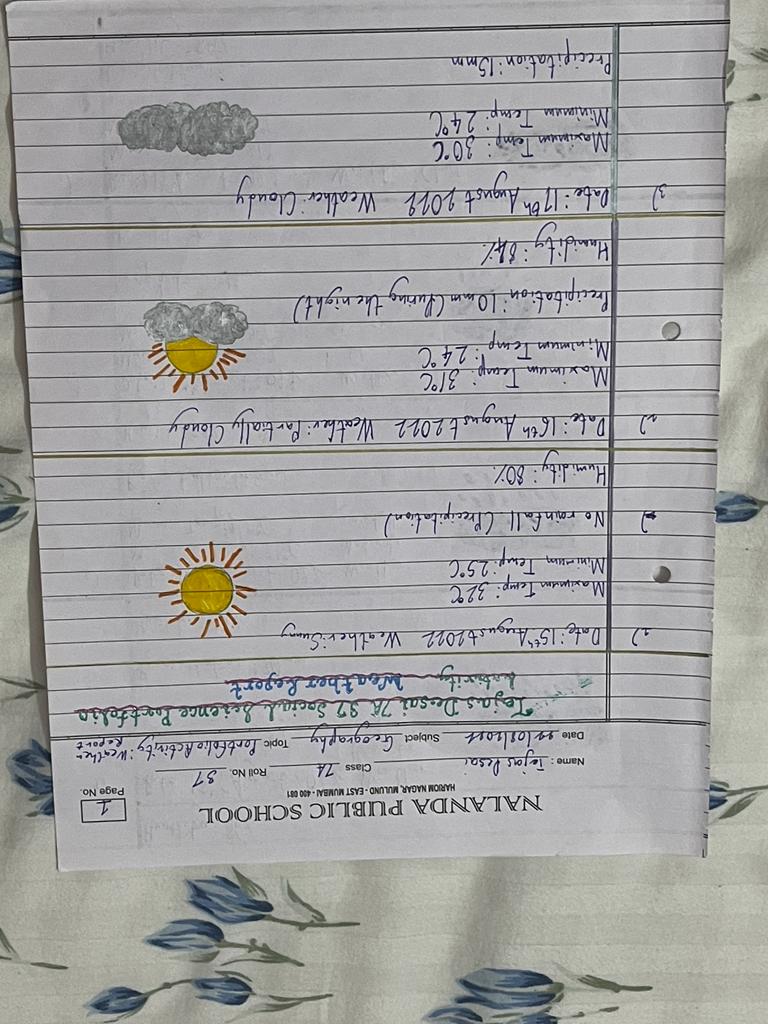 NALANDA PUBLIC SCHOOL
HARIOM NAGAR, MULUND - EAST MUMBAI - 400 081
1
Page No.
Name : Tejas Desai Class 7A Roll No. 37
Date 22/08/2022 Subject Geography Topic Portfolio Activity: Weather Report
Tejas Desai 7A 37 Social Science Portfolio
Activity Weather Report
1) Date: 15th August 2022 Weather: Sunny
Maximum Temp: 32°C
Minimum Temp: 25°C
No rainfall (Precipitation)
Humidity: 80%
2) Date: 16th August 2022 Weather: Partially Cloudy
Maximum Temp: 31°C
Minimum Temp: 24°C
Precipitation: 10mm (During the night)
Humidity: 84%
3) Date: 17th August 2022 Weather: Cloudy
Maximum Temp: 30°C
Minimum Temp: 24°C
Precipitation: 15mm